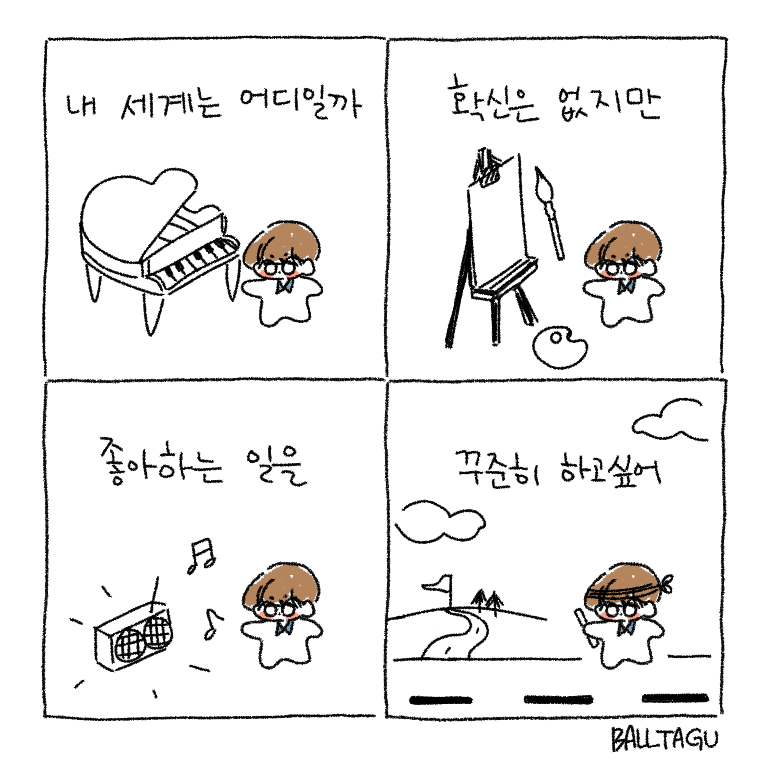 내 세계는 어디일까
확신은 없지만
좋아하는 일을
꾸준히 하고싶어
BALLTAGU